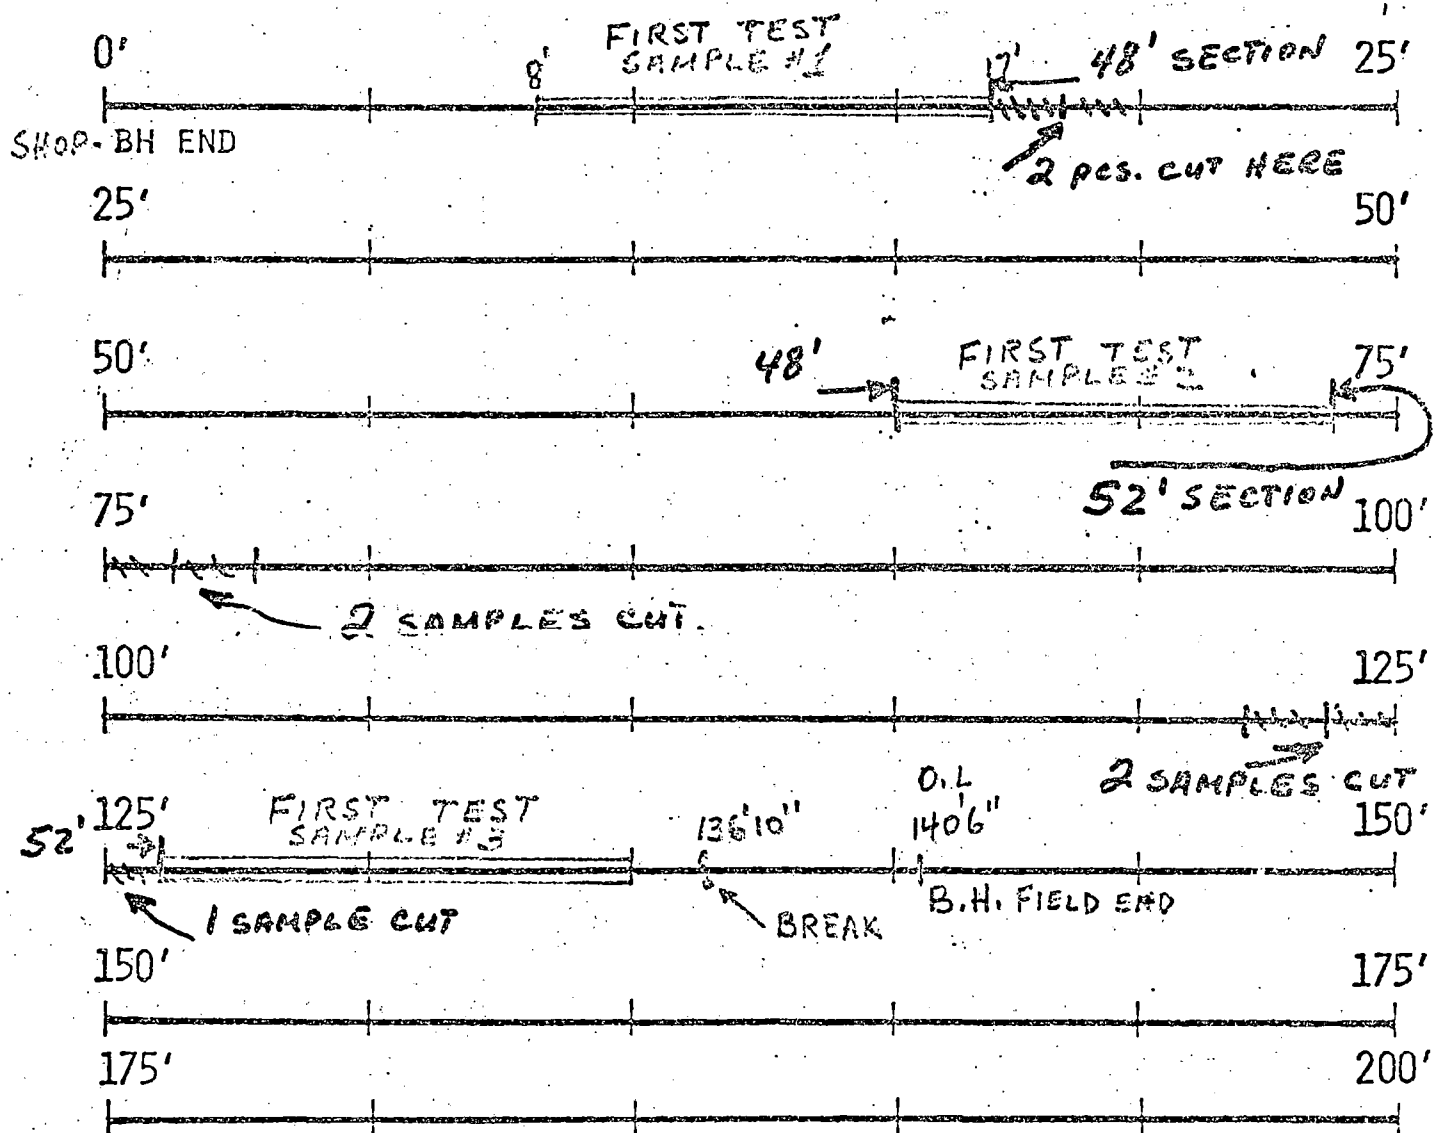 FIRST TEST
SAMPLE #1
0'
8'
17'
48' SECTION
25'
SHOP- BH END
2 pcs. CUT HERE
25'
50'
50'
48'
FIRST TEST
SAMPLE # 2
75'
52' SECTION
75'
100'
2 SAMPLES CUT.
100'
125'
2 SAMPLES CUT
O.L
125'
FIRST TEST
SAMPLE #3
136'10"
140'6"
150'
52'
B.H. FIELD END
1 SAMPLE CUT
BREAK
150'
175'
175'
200'